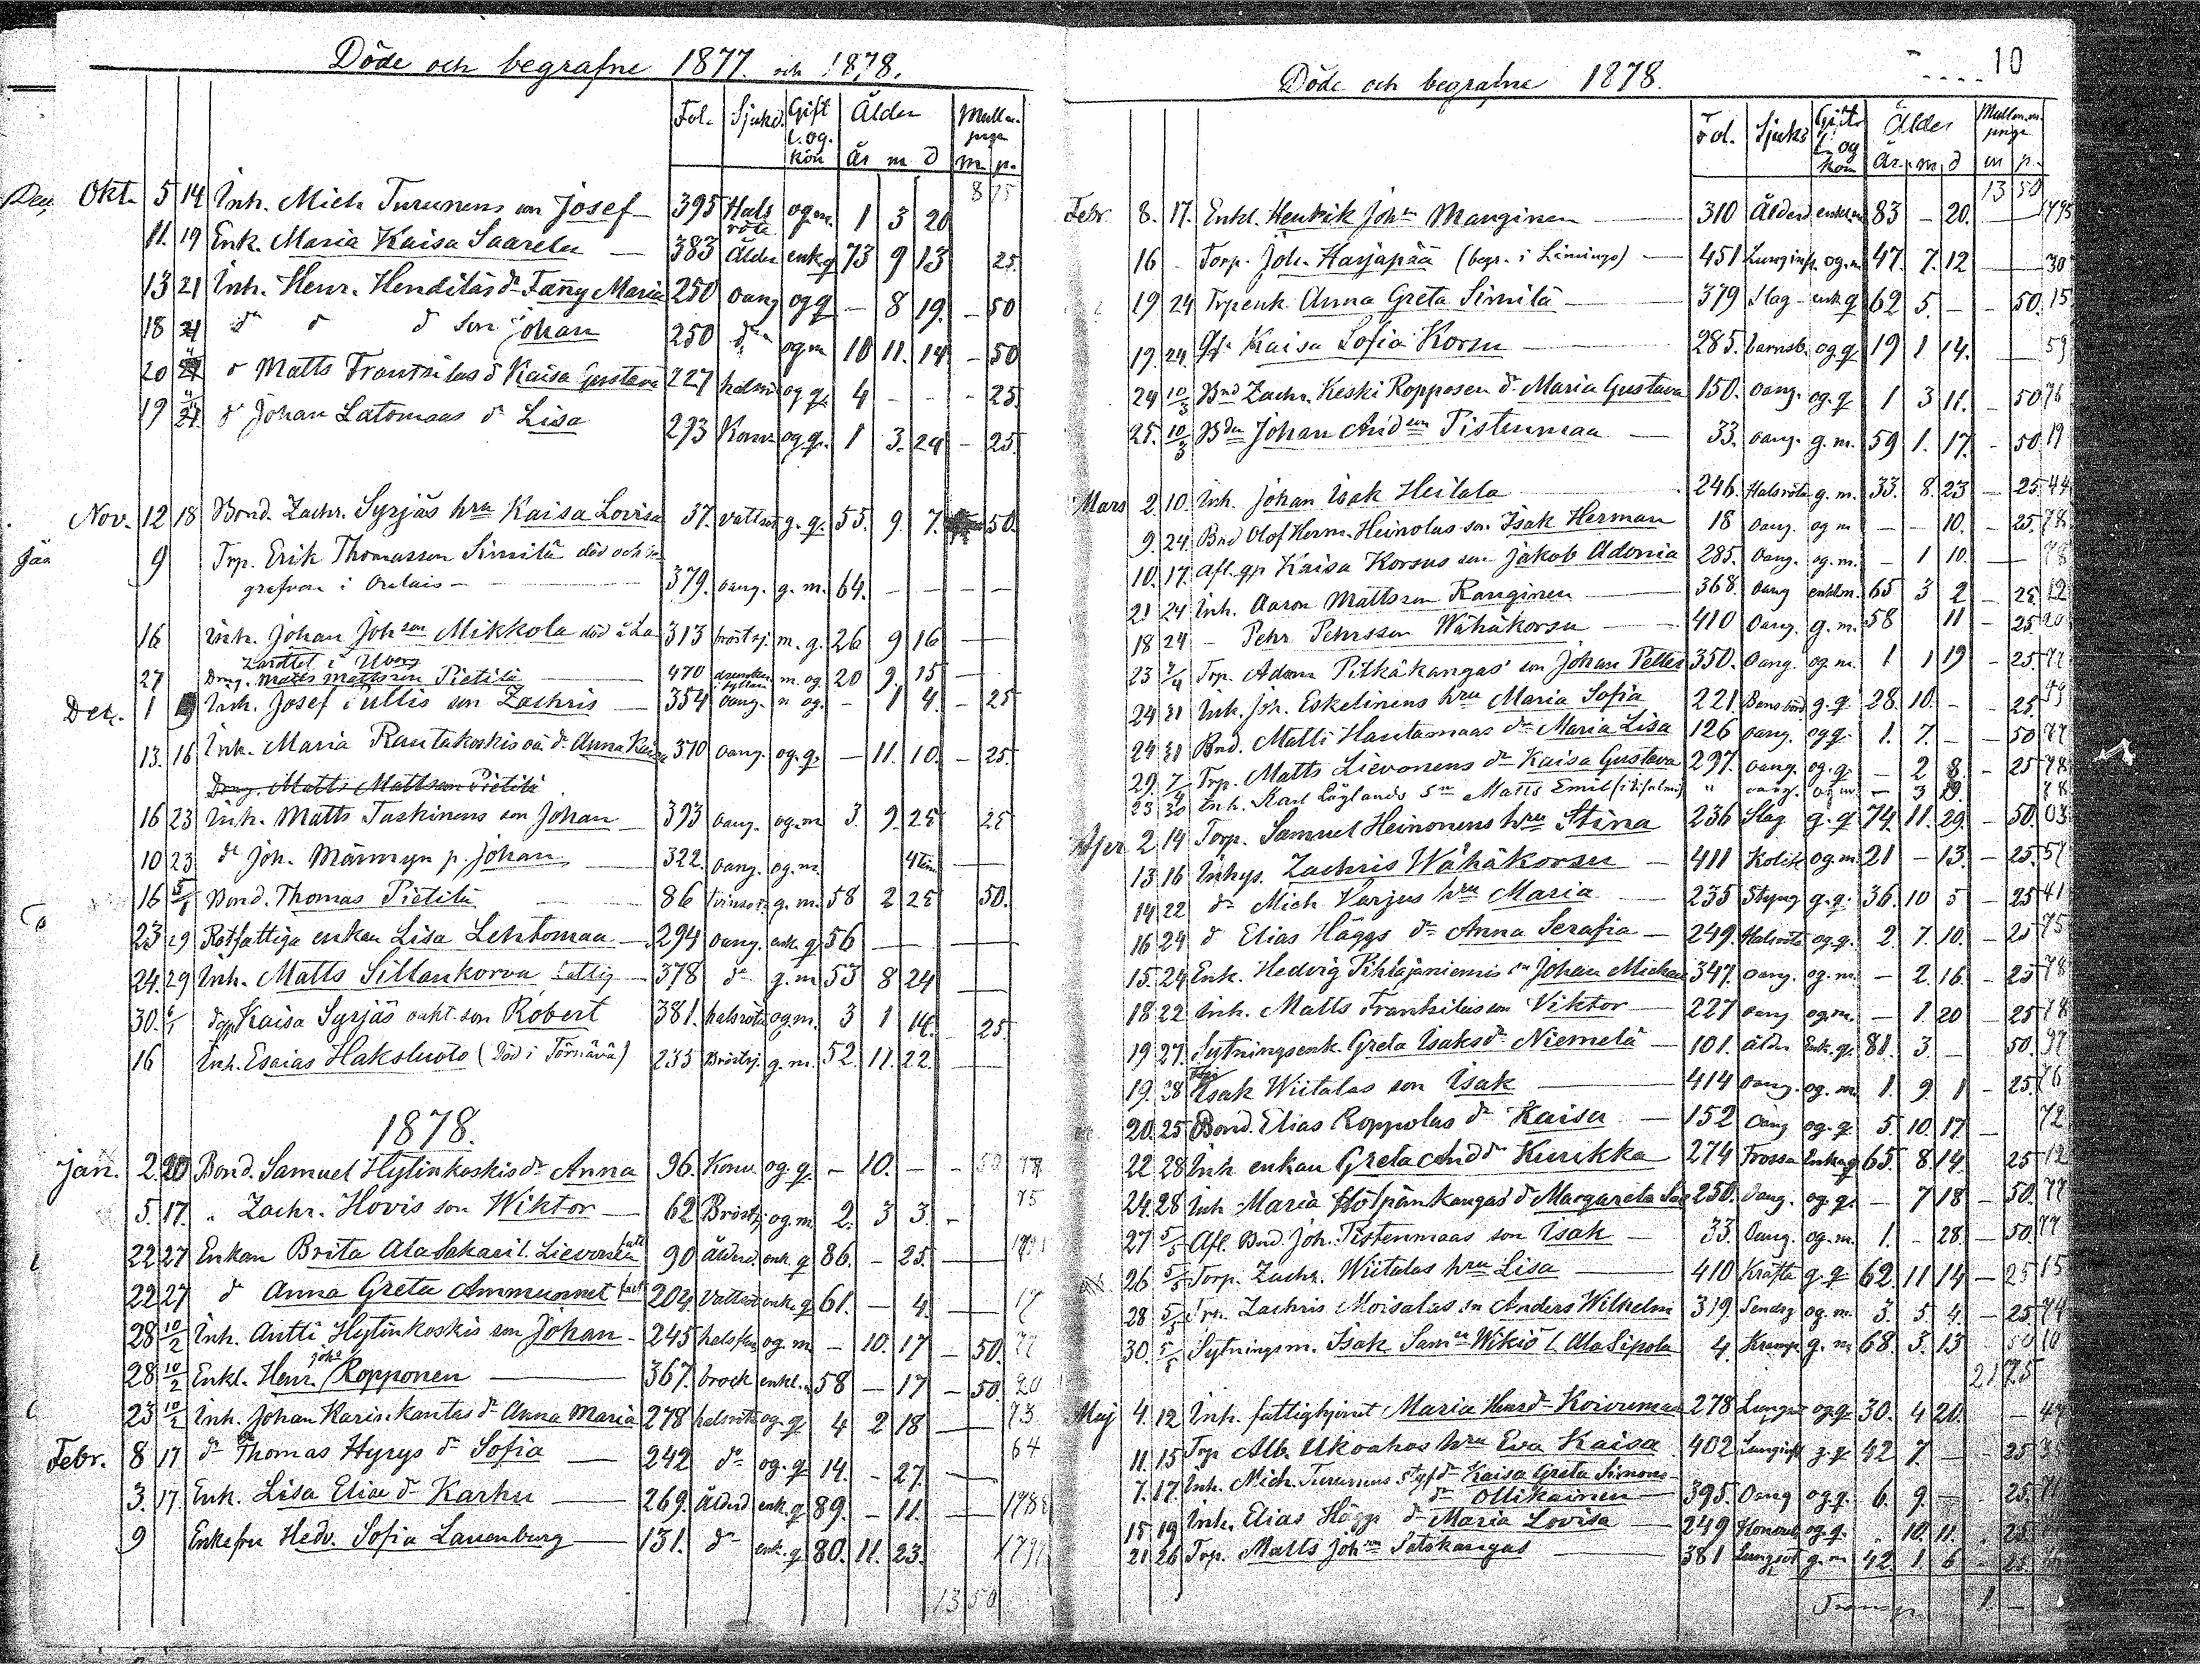 Döde och begrafne 1877 och 1878.
Fol. Sjukd. Gift l. og. kön Ålder Mullpenga
År m d m p.
8 75
Okt. 5 14 Inh. Mich Turunens son Josef 395 Halsröta og m. 1 3 20
11. 19 Enk. Maria Kaisa Saarela 383 Ålder enk q 73 9 13 25.
13 21 Inh. Henr. Hendiläs dr Fanny Maria 250 oang og q — 8 19. — 50
18 21 dr d d son Johan 250 d og m 10 11. 14 — 50
20 d Matts Frantsilas d Kaisa Gustava 227 og q. 4 - - - 25.
19 d Johan Latomaas dr Lisa 293 og q. 1 3. 24 - 25.
Nov. 12 18 Bond. Zachr. Syrjäs hru Kaisa Lovisa 37. vattsot g. q. 55. 9. 7. 50.
9 Trp. Erik Thomasson Simitä död och be
grafven i Oulais — 379. oang. g. m. 64. — — — —
16 Inh. Johan Johson Mikkola död å La 313 bröstsj. m. g. 26 9 16 —
zarettet i Uleåg
27 Drg. Matts Mattsson Pietilä 470 m. og. 20 9. 15 —
Dec. 1 9 Inh. Josef Ullis son Zachris 354 oang. m og. - 1 4. - 25
13. 16 Inh. Maria Rautakoskis oä dr Anna Kaisa 370 oang. og. q. — 11. 10. — 25.
Drng. Matts Mattsson Pietilä
16 23 Inh. Matts Tuskinens son Johan 393 oang. og. m 3. 9. 25 25
10 23 dr Joh. Männyn p. Johan 322. oang. og. m. 4 tim —
16 5/1 Bond. Thomas Pietilä 86 g. m. 58 2 25 50.
23 29 Rotfattiga enkan Lisa Lehtomaa 294 oang. enk. q 56 — — —
24. 29 Inh. Matts Siltankorva fattig 378 dr g. m 53 8 24 —
30. 6/1 Kaisa Syrjäs oäkt. son Robert 381. halsröta og m. 3 1 14. 25.
16 Inh. Esaias Haksluoto (Död i Törnävä) 235 Bröstsj. g. m. 52. 11. 22. —
1878.
Jan. 2. 20 Bond. Samuel Hylinkoskis dr Anna 96. Konv. og. q. — 10. — — 50 78
5. 17. " Zachr. Hovis son Wiktor 62 Bröstsj og. m. 2. 3 3. - 75
22 27 Enkan Brita Alasakari l. Lievonen fatt 90 Ålderd. enk. q 86. — 25. —
22 27 d Anna Greta Ammunnet fatt 204 Vattsot enk. q 61. — 4. — 17
28 10/2 Inh. Antti Hylinkoskis son Johan 245 og m — 10. 17 — 50. 77
28 10/2 Enkl. Henr. Johs Ropponen 367. brock enkl. m 58 — 17 — 50. 20
23 10/2 Inh. Johan Karinkantas dr Anna Maria 278 halsröta og. q 4 2 18 — 73
Febr. 8 17 dr Thomas Hyrys dr Sofia 242 dr og. q 14. — 27. — 64
3. 17. Enk. Lisa Elias dr Karhu 269. Ålderd enk. q 89. — 11. — 178
9 Enkefru Hedv. Sofia Lauenburg 131. dr enk. q 80. 11. 23.
13 50
Döde och begrafne 1878. 10
Fol. Sjukd Gift l. og kön Ålder Mullpenga
År. m. d m p.
13 50
Febr. 8. 17. Enkl. Henrik John Manginen 310 Ålderd enkl. m 83 — 20. — 1795
16 - Torp. Joh. Harjapää (begr. i Limingo) 451 Lunginfl. og. m 47. 7. 12 — 30
19 24 Trpenk. Anna Greta Simitä 379 Slag enk q 62 5. — — 50. 15
19. 24. Kaisa Sofia Korsu 285. barnsb. og. q. 19 1 14. — 59
24 10/3 Bnd Zachr. Keski Ropposen dr Maria Gustava 150. oang. og. q 1 3 11. — 50 76
25. 10/3 Bdn Johan And son Pistenmaa 33. oang. g. m. 59 1. 17. — 50. 19
Mars 2. 10. Inh. Johan Isak Heilala 246. Halsröta g. m. 33. 8. 23 — 25 44
9. 24. Bnd Olof Herm. Heinolas son Isak Herman 18 oang. og m — — 10. — 25. 78
10. 17. afl. gp Kaisa Korsus son Jakob Adonia 285. oang. og. m. — 1 10. — 78
21 24 Inh. Aaron Mattsson Ranginen 368. oang enkl. m. 65 3 2 — 25 12
18 24 — Pehr Pehrsson Wähäkorsu 410 oang. g. m. 58 11 — 25. 20
23 7/4 Trp. Adam Pitkäkangas' son Johan Petter 350. oang. og. m. 1 1 19 — 25. 77
24 31 Inh. Joh. Eskelinens hru Maria Sofia 221. Barnsbörd g. q. 28. 10. — — 25.
24 31 Bnd. Matti Hautamaas dr Maria Lisa 126 oang. og q. 1. 7. — — 50 77
29. 7/4 Trp. Matts Lievonens dr Kaisa Gustava 297. oang. og. q. — 2 8. — 25 78
23 30 Inh. Karl Löglands sn Matts Emil " oang. og m — 3 19. 78
Apr 2 14 Torp. Samuel Heinonens hru Stina 236 Slag g. q 74. 11. 29. — 50. 03
13 16 Inhys. Zachris Wähäkorsu 411 Kolik og. m. 21 — 13. — 25. 57
14 22 dr Mich Varjus hru Maria 235 Styng g. q. 36. 10 5 — 25 41
16 24 d Elias Häggs dr Anna Serafia 249. Halsröta og. q. 2. 7. 10. — 25 75
15. 24 Enk. Hedvig Pihlajaniemis sn Johan Mickael 347. oang. og. m. — 2. 16. — 25 78
18 22 Inh. Matts Frantsilas son Viktor 227 oang og. m. — 1. 20 — 25 78
19 27. Sytningsenk. Greta Isaks dr Niemelä 101. ålder Enk. q. 81. 3. — 50. 97
19. 28 Isak Wiitalas son Isak 414 oang. og. m. 1. 9. 1 — 25 76
20. 25 Bond. Elias Roppolas dr Kaisa 152 Oang og. q. 5 10. 17. — 72
22 28 Inh enkan Greta And dr Kurikka 274 Frossa Enka q 65. 8. 14. 25 12
24. 28 Inh Maria Hötpänkangas d Margareta 250. Oang. og. q. — 7 18 — 50. 77
27 5/5 Afl. Bnd. Joh. Pistenmaas son Isak 33. Oang. og. m. 1. — 28. — 50. 77
26 5/5 Torp. Zachr. Wiitalas hru Lisa 410 Kräfta g. q 62. 11 14 — 25 15
28 5/5 Trp. Zachris Moisalas sn Anders Wilhelm 319. og. m. 3. 5 4. — 25. 74
30. 5/5 Sytningsm. Isak Samn Wikiö l. Ala Sipola 4. Kramp g. m 68. 3. 13 50 10
21 75
Maj 4. 12 Inh. fattighjonet Maria Henrd Koivumaa 278 og. q 30. 4 20. — 47
11. 15 Trp Alb. Ukoahos hru Eva Kaisa 402 Lunginfl. g. q 42 7. — — 25 35
7. 17. Inh. Mich. Turunens styfdr Kaisa Greta Simons-
dr Ollikainen 395. Oang og q. 6. 9. — 25. 71
15 19 Inh. Elias Häggs dr Maria Lovisa 249 og. q. 10. 11. 25
21 26 Trp. Matts Johson Satokangas 381 Lungsot g. m 42. 1. 6 — 25
1 —